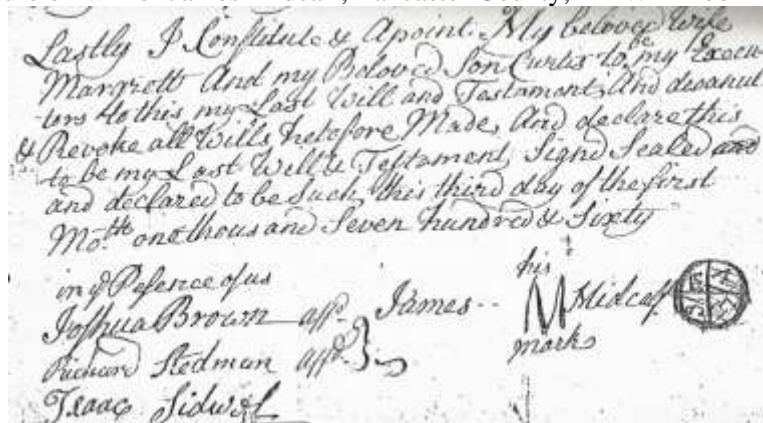 Lastly I Constitute & Apoint My beloved Wife
Margrett And my Beloved Son Curtis to be my Execu
tors to this my Last Will and Testament, And deoanul
& Revoke all Wills hetofore Made, And declare this
to be my Last Will & Testtament, Signd Sealed and
and declared to be Such this third day of the first
Mo.th one thousand Seven hundred & Sixty
in ye Pesence of us
his
Joshua Brown affd. James M Midcaf
Richard Stedman affd. marks
Isaac Sidwel